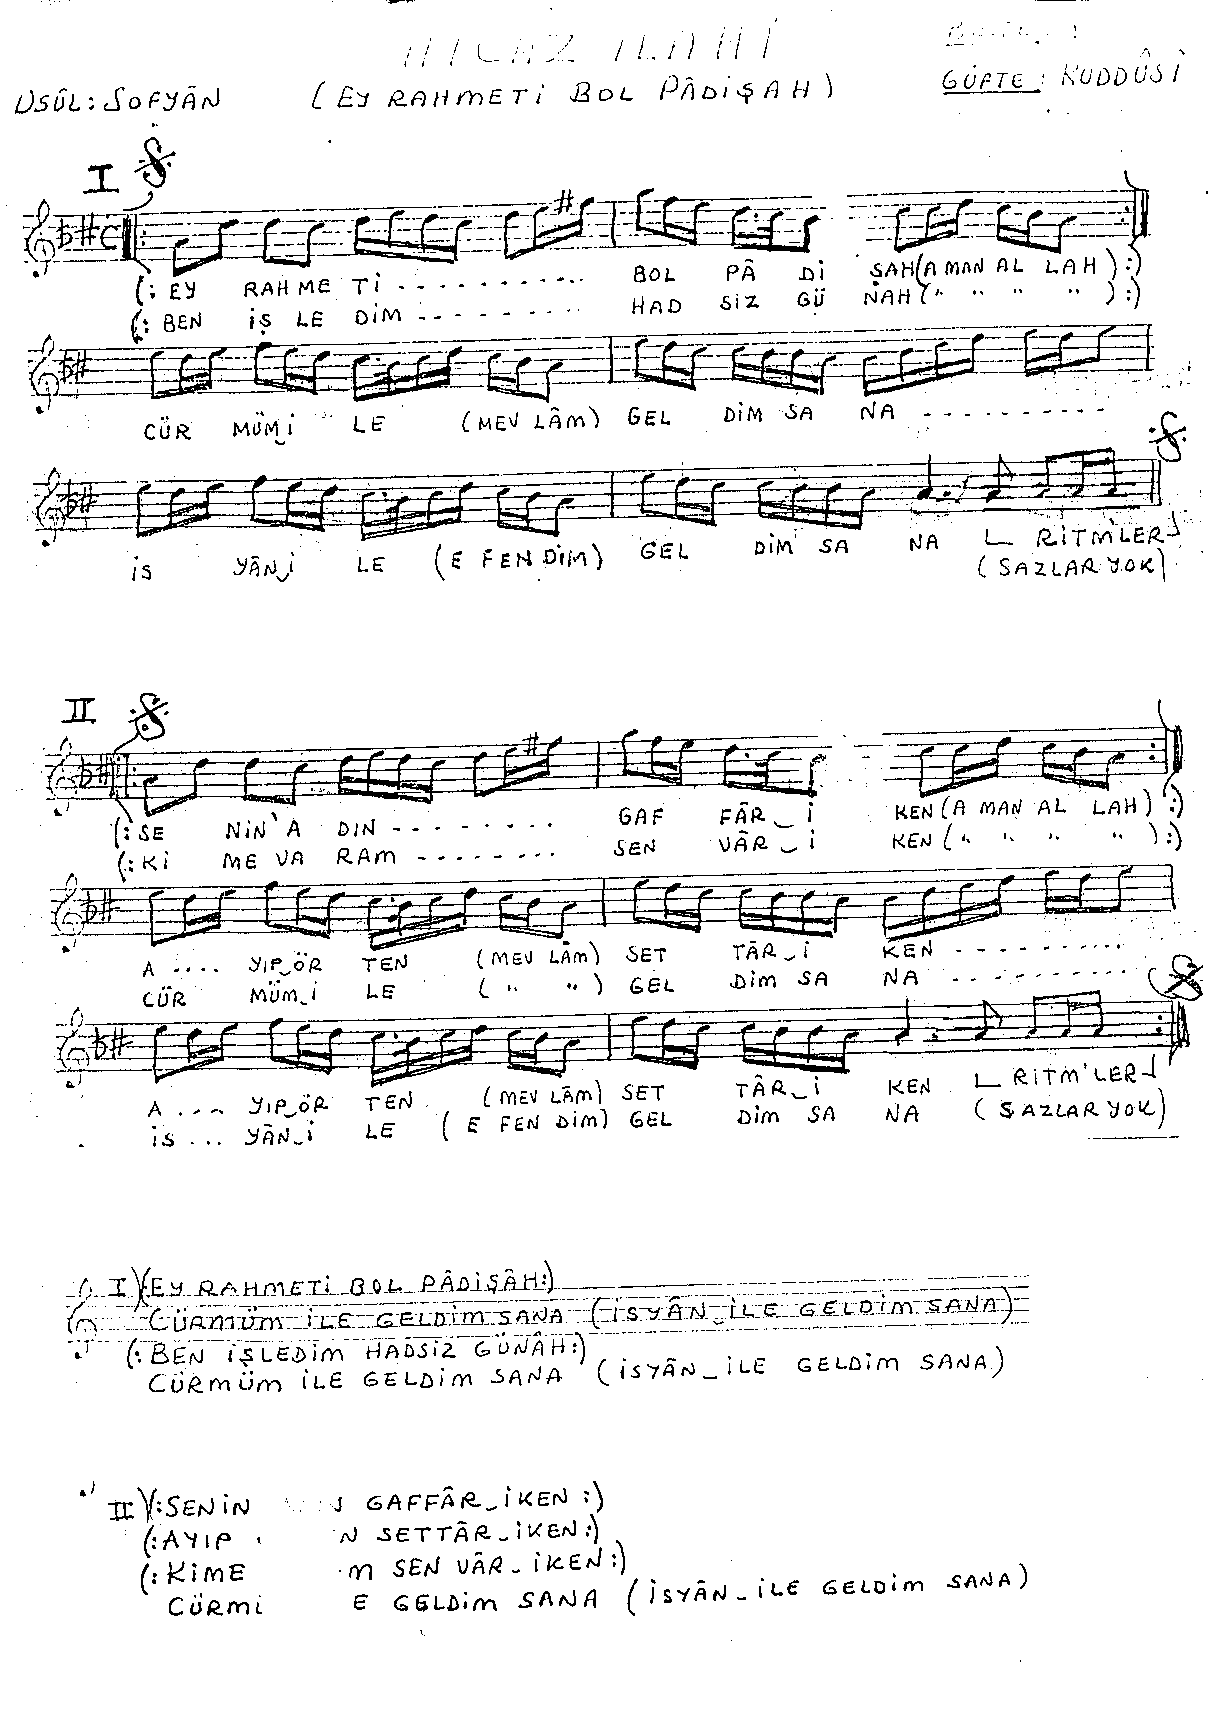 HİCAZ İLAHİ
USÛL: SOFYÂN (EY RAHMETİ BOL PÂDİŞAH) GÜFTE: KUDDÛSİ
I
(: EY RAHMETİ - - - - - - - - - - BOL PÂ Dİ ŞAH (A MAN AL LAH ) :)
(: BEN İŞ LE DİM - - - - - - - - - HAD SİZ GÜ NAH ( " " " " ) :)
CÜR MÜM_İ LE (MEV LÂM) GEL DİM SA NA - - - - - - - - - -
İS YÂN_İ LE (E FEN DİM) GEL DİM SA NA RİTM'LER
(SAZLAR YOK)
II
(: SE NİN'A DIN - - - - - - - - GAF FÂR_İ KEN (A MAN AL LAH) :)
(: Kİ ME VA RAM - - - - - - - - SEN VÂR_İ KEN ( " " " " ) :)
A .... YIP_ÖR TEN (MEV LÂM) SET TÂR_İ KEN - - - - - - - - -
CÜR MÜM_İ LE ( " " ) GEL DİM SA NA - - - - - - - - -
A .... YIP_ÖR TEN (MEV LÂM) SET TÂR_İ KEN RİTM'LER
İS ... YÂN_İ LE ( E FEN DİM) GEL DİM SA NA (SAZLAR YOK)
I)(: EY RAHMETİ BOL PÂDİŞÂH:)
CÜRMÜM İLE GELDİM SANA (İSYÂN_İLE GELDİM SANA)
(: BEN İŞLEDİM HADSİZ GÜNÂH:)
CÜRMÜM İLE GELDİM SANA (İSYÂN_İLE GELDİM SANA)
II)(: SENİN N GAFFÂR_İKEN :)
(: AYIP N SETTÂR_İKEN:)
(: KİME M SEN VÂR_İKEN:)
CÜRMİ E GELDİM SANA (İSYÂN_İLE GELDİM SANA)